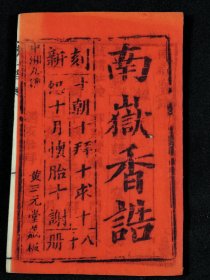 南嶽香誥
刻十朝十拜十求十八
新恕十月懷胎十謝
黄三元堂藏板
中湘九總